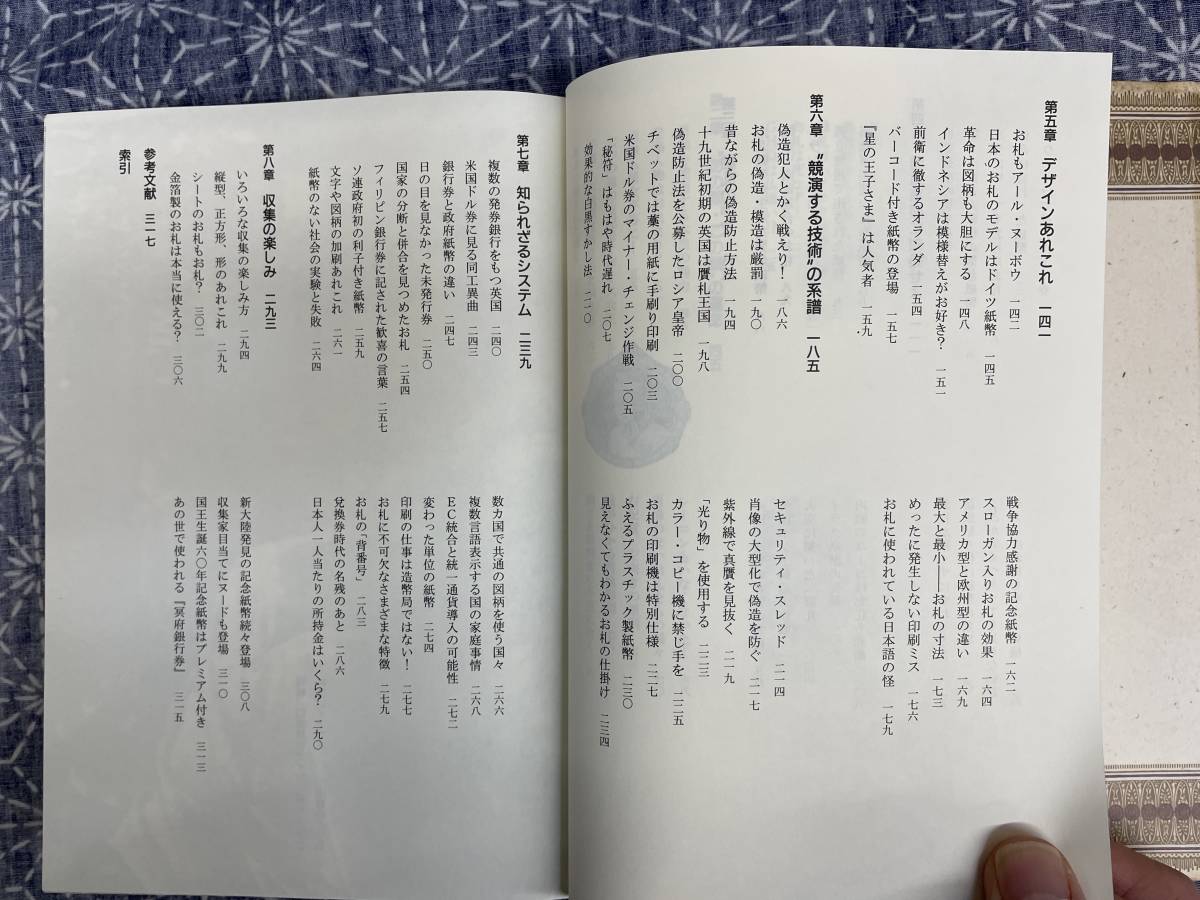 第五章 デザインあれこれ 一四一
お札もアール・ヌーボウ 一四二
日本のお札のモデルはドイツ紙幣 一四五
革命は図柄も大胆にする 一四八
インドネシアは模様替えがお好き? 一五一
前衛に徹するオランダ 一五四
バーコード付き紙幣の登場 一五七
『星の王子さま』は人気者 一五九
戦争協力感謝の記念紙幣 一六二
スローガン入りお札の効果 一六四
アメリカ型と欧州型の違い 一六九
最大と最小――お札の寸法 一七三
めったに発生しない印刷ミス 一七六
お札に使われている日本語の怪 一七九
第六章 “競演する技術”の系譜 一八五
偽造犯人とかく戦えり! 一八六
お札の偽造・模造は厳罰 一九〇
昔ながらの偽造防止方法 一九四
十九世紀初期の英国は贋札王国 一九八
偽造防止法を公募したロシア皇帝 二〇〇
チベットでは藁の用紙に手刷り印刷 二〇三
米国ドル券のマイナー・チェンジ作戦 二〇五
「秘符」はもはや時代遅れ 二〇七
効果的な白黒すかし法 二一〇
セキュリティ・スレッド 二一四
肖像の大型化で偽造を防ぐ 二一七
紫外線で真贋を見抜く 二一九
「光り物」を使用する 二二三
カラー・コピー機に禁じ手を 二二五
お札の印刷機は特別仕様 二二七
ふえるプラスチック製紙幣 二三〇
見えなくてもわかるお札の仕掛け 二三四
第七章 知られざるシステム 二三九
複数の発券銀行をもつ英国 二四〇
米国ドル券に見る同工異曲 二四三
銀行券と政府紙幣の違い 二四七
日の目を見なかった未発行券 二五〇
国家の分断と併合を見つめたお札 二五四
フィリピン銀行券に記された歓喜の言葉 二五七
ソ連政府初の利子付き紙幣 二五九
文字や図柄の加刷あれこれ 二六一
紙幣のない社会の実験と失敗 二六四
数カ国で共通の図柄を使う国々 二六六
複数言語表示する国の家庭事情 二六八
EC統合と統一通貨導入の可能性 二七二
変わった単位の紙幣 二七四
印刷の仕事は造幣局ではない! 二七七
お札に不可欠なさまざまな特徴 二七九
お札の「背番号」 二八三
兌換券時代の名残のあと 二八六
日本人一人当たりの所持金はいくら? 二九〇
第八章 収集の楽しみ 二九三
いろいろな収集の楽しみ方 二九四
縦型、正方形、形のあれこれ 二九九
シートのお札もお札? 三〇二
金箔製のお札は本当に使える? 三〇六
新大陸発見の記念紙幣続々登場 三〇八
収集家目当てにヌードも登場 三一〇
国王生誕六〇年記念紙幣はプレミアム付き 三一三
あの世で使われる『冥府銀行券』 三一五
参考文献 三一七
索引